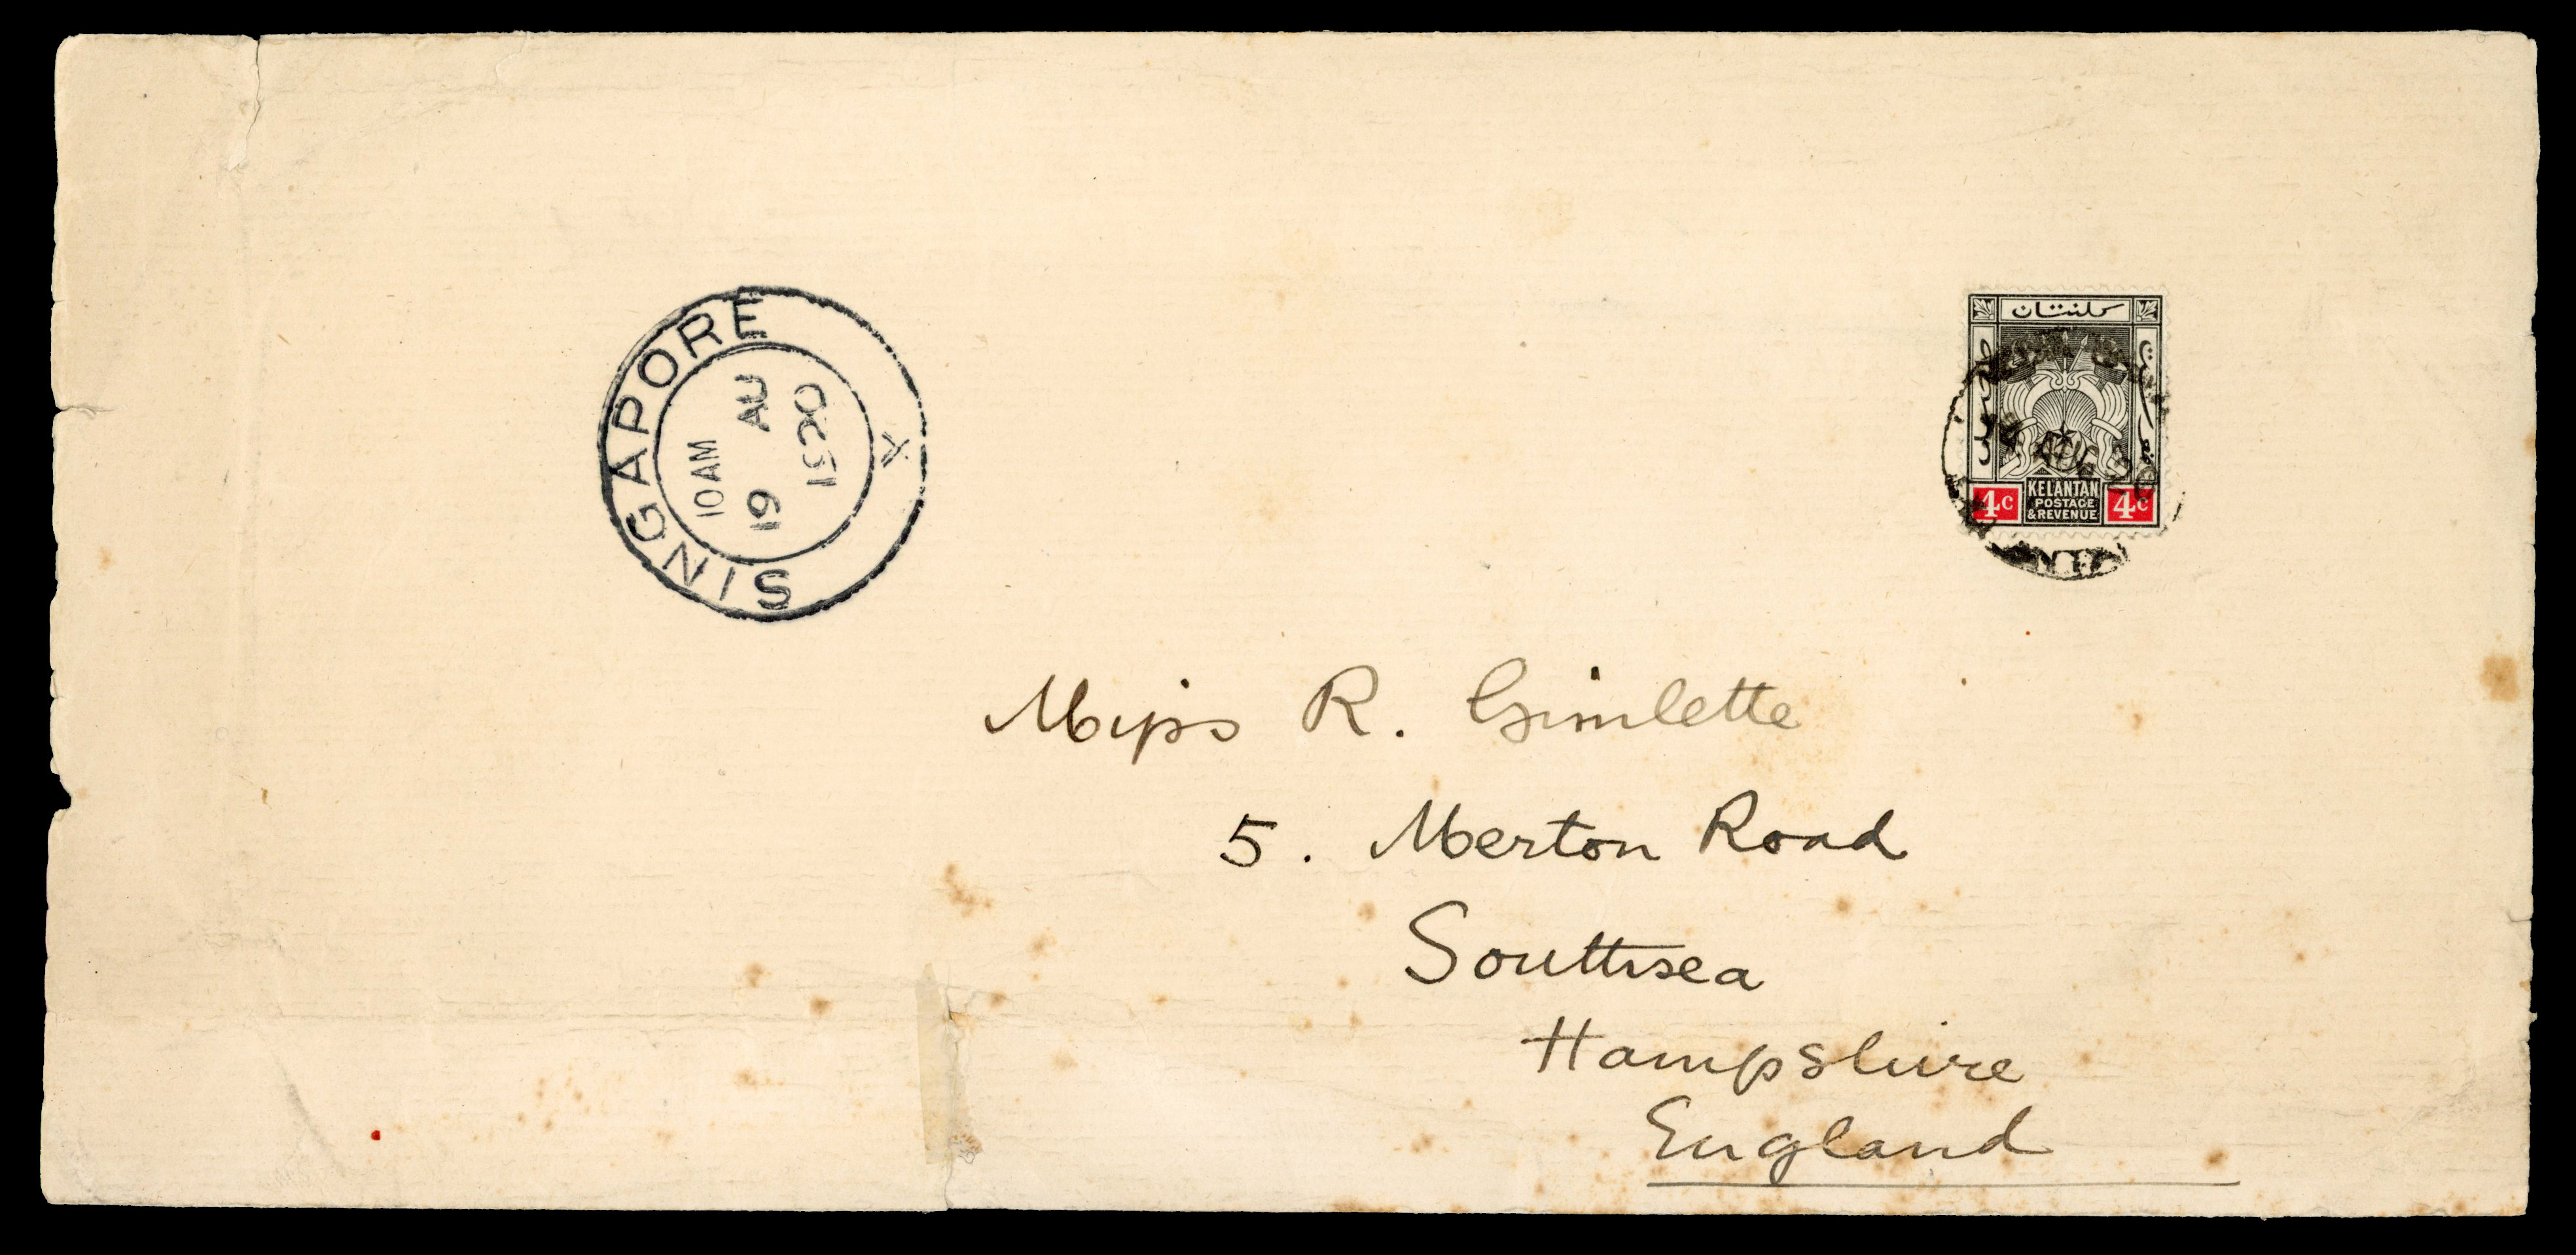 SINGAPORE
X
10AM
19 AU
1920
كلنتان
4c KELANTAN 4c
POSTAGE
& REVENUE
Miss R. Gimlette
5. Merton Road
Southsea
Hampshire
England